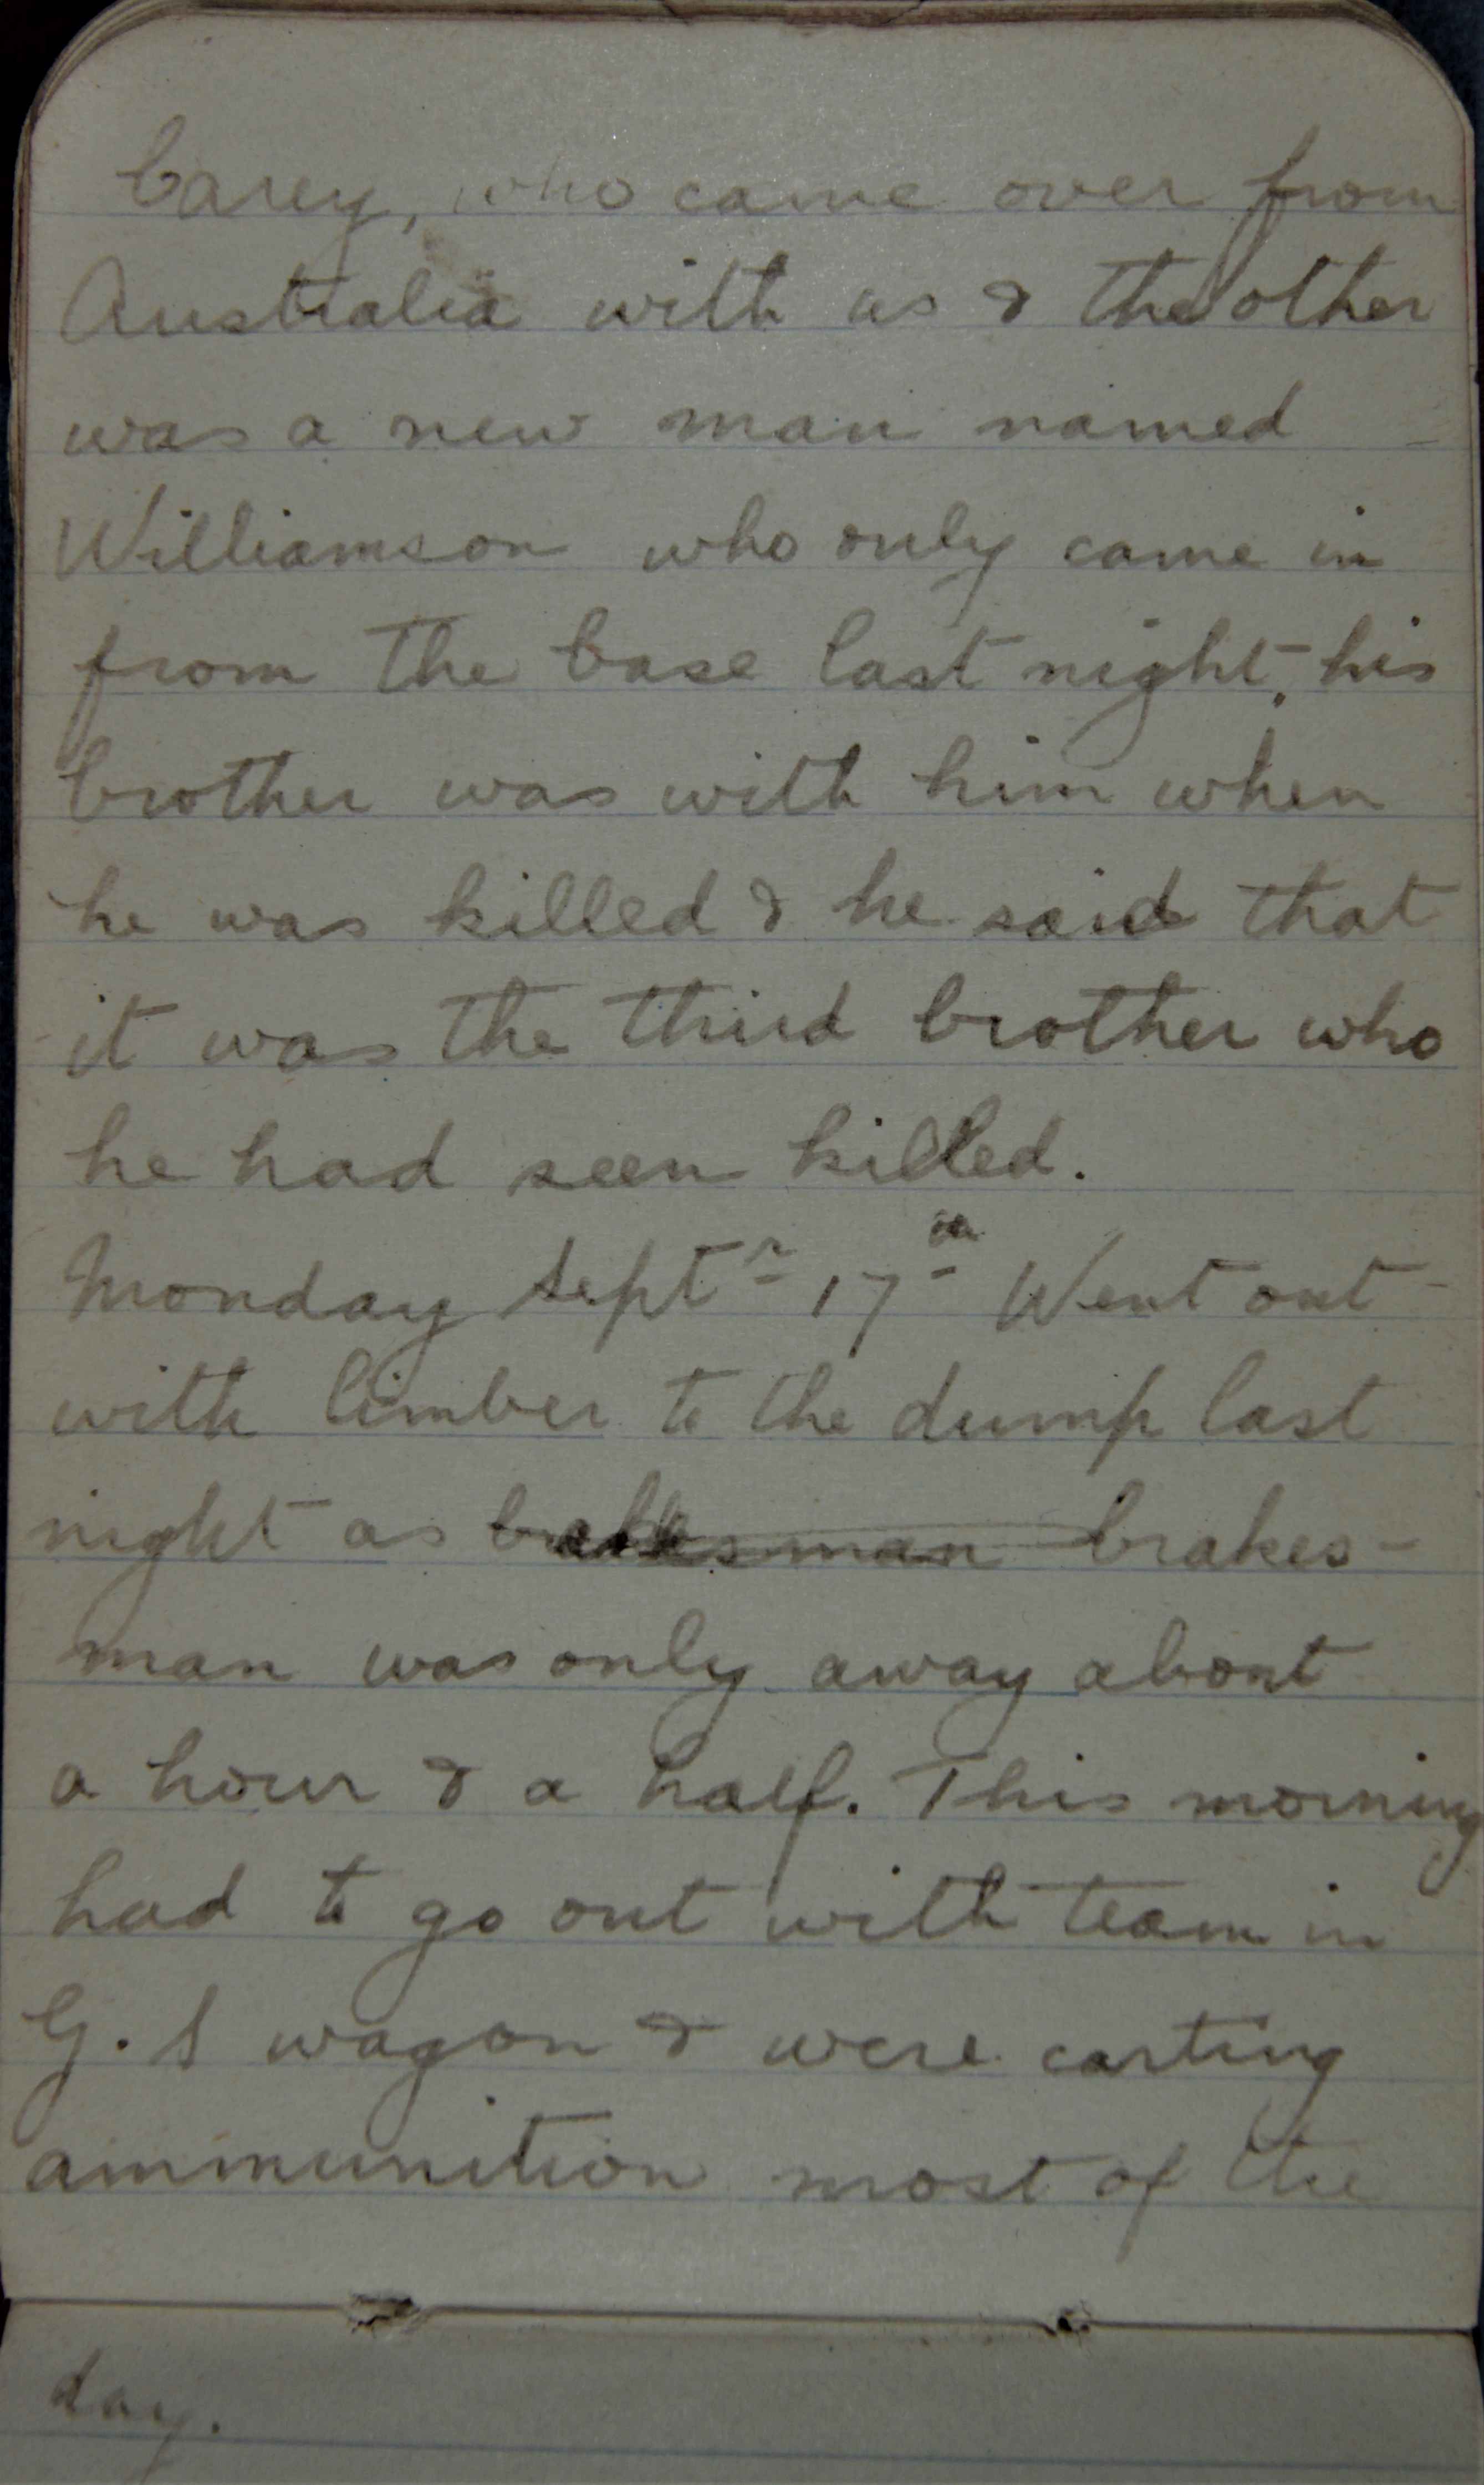 Carey, who came over from
Australia with us & the other
was a new man named
Williamson who only came in
from the base last night, his
brother was with him when
he was killed & he said that
it was the third brother who
he had seen killed.
Monday Septr 17th Went out
with limber to the dump last
night as brakes-
man was only away about
a hour & a half. This morning
had to go out with team in
G.S wagon & were carting
ammunition most of the
day.